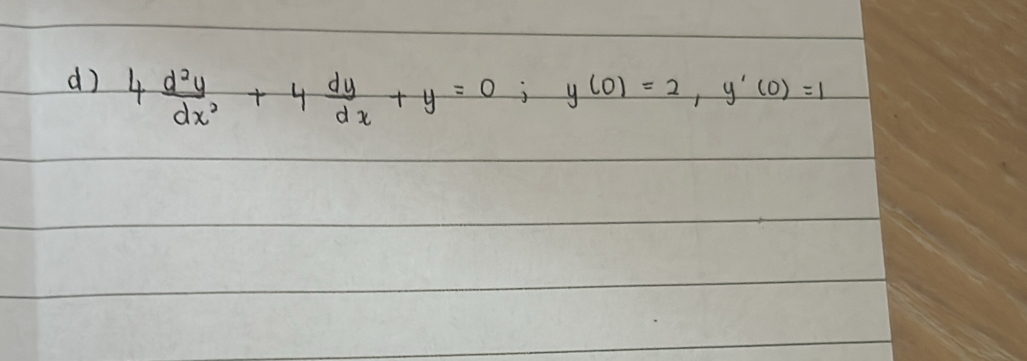 d) 4 d²y/dx² + 4 dy/dx + y = 0 ; y(0) = 2, y'(0) = 1